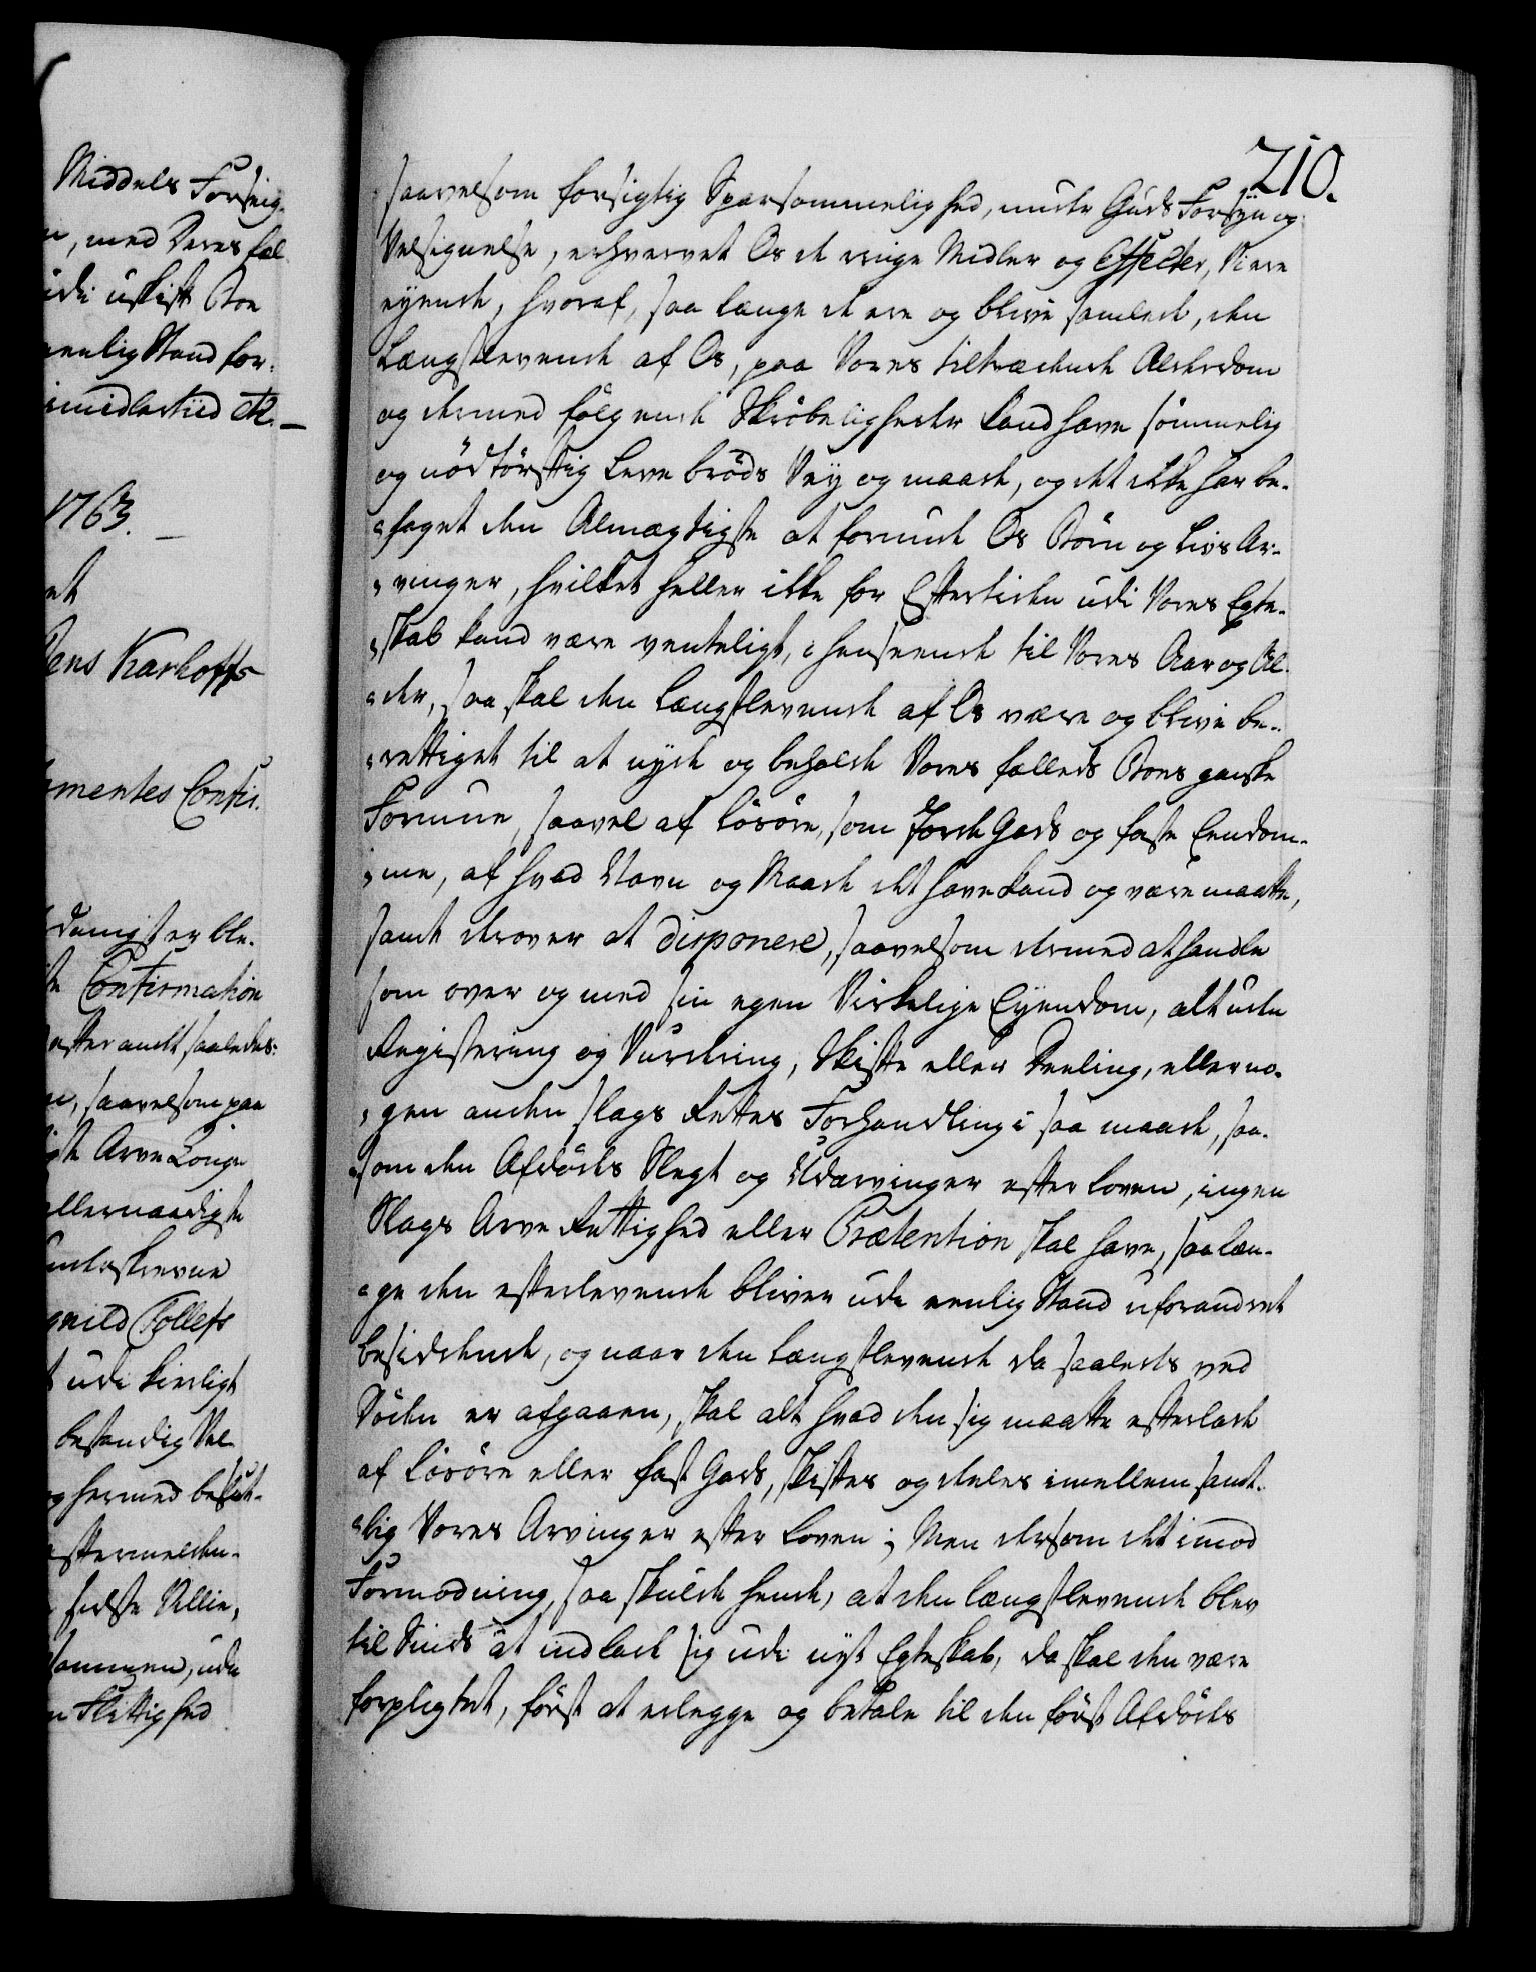 Middels Forseig-
n, med Deres fæl
udi uskift Boe
eenlig Stand for-
imidlertiid etc. —
1763. —
et
Jens Karhoffs
mentes Confir.
danigst er ble-
te Confirmation
efter andt saaledes:
saavelsom paa
Arve Longe
allernaadigste
underskrevne
gnild Tollefs
t udi kierligt
bestandig Vel
og hermed beslut-
eftermelden-
sidste Villie,
sammen, uden
n Flittighed
210.
saavelsom forsigtig Sparsommelighed, under Guds Forsyn og
Velsignelse, erhvervet Os de ringe Midler og Effecter, Vi ere
eyende, hvoraf, saa længe de ere og blive samlede, den
Længstlevende af Os, paa Vores tiltrædende Alderdom
og dermed følgende Skrøbeligheder kand have sømmelig
og nødtørftig Leve brøds Vey og maade, og det ikke har be-
haget den Almægtigste at forunde Os Børn og Livs Ar-
vinger, hvilket heller ikke for Eftertiden udi Vores Egte-
skab kand være venteligt, i henseende til Vores Aar og Al-
der, saa skal den Længstlevende af Os være og blive be-
rettiget til at nyde og beholde Vores fælleds Boes ganske
Formue, saavel af Løsøre, som Jorde Gods og faste Eendom-
me, af hvad Navn og Maade det have kand og være maatte,
samt derover at disponere, saavelsom dermed at handle
som over og med sin egen Virkelige Eyendom, alt uden
Registering og Vurdering, Skifte eller Deeling, eller no-
gen anden slags Rettes Forhandling i saa maade, saa-
som den Afdødes Slegt og Udarvinger efter Loven, ingen
Slags Arve Rettighed eller Prætention skal have, saa læn-
ge den efterlevende bliver udi eenlig Stand uforandret
besiddende, og naar den Længstlevende da saaledes ved
Døden er afgaaen, skal alt hvad den sig maatte efterlade
af Løsøre eller fast Gods, skiftes og deeles imellem samt-
lig Vores Arvinger efter Loven; Men dersom det imod
Formodning, saa skulde hende, at den længstlevende blev
til Sinds at indlade sig udi nyt Egteskab, da skal den være
forpligtet, først at erlegge og betale til den først Afdødes